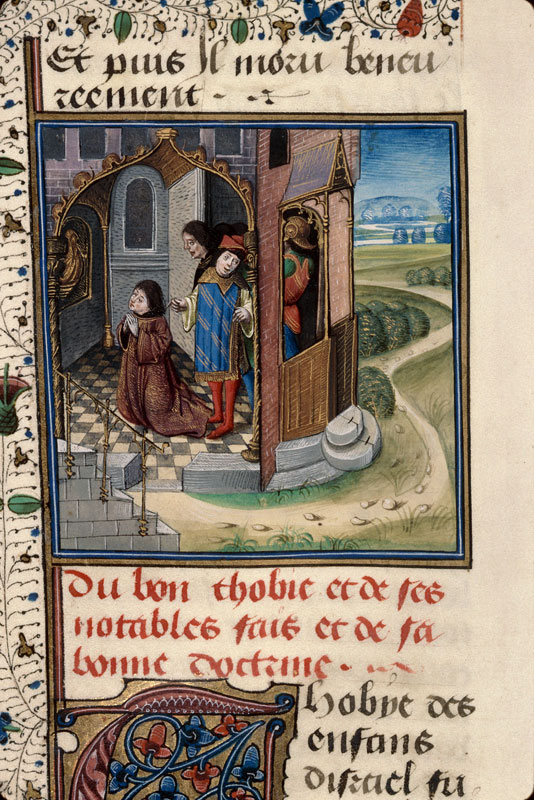 Et puis Il moru beneu
reement
Du bon thobie et de ses
notables fais et de sa
bonne doctrine
Thobye des
enfans
disrael fu